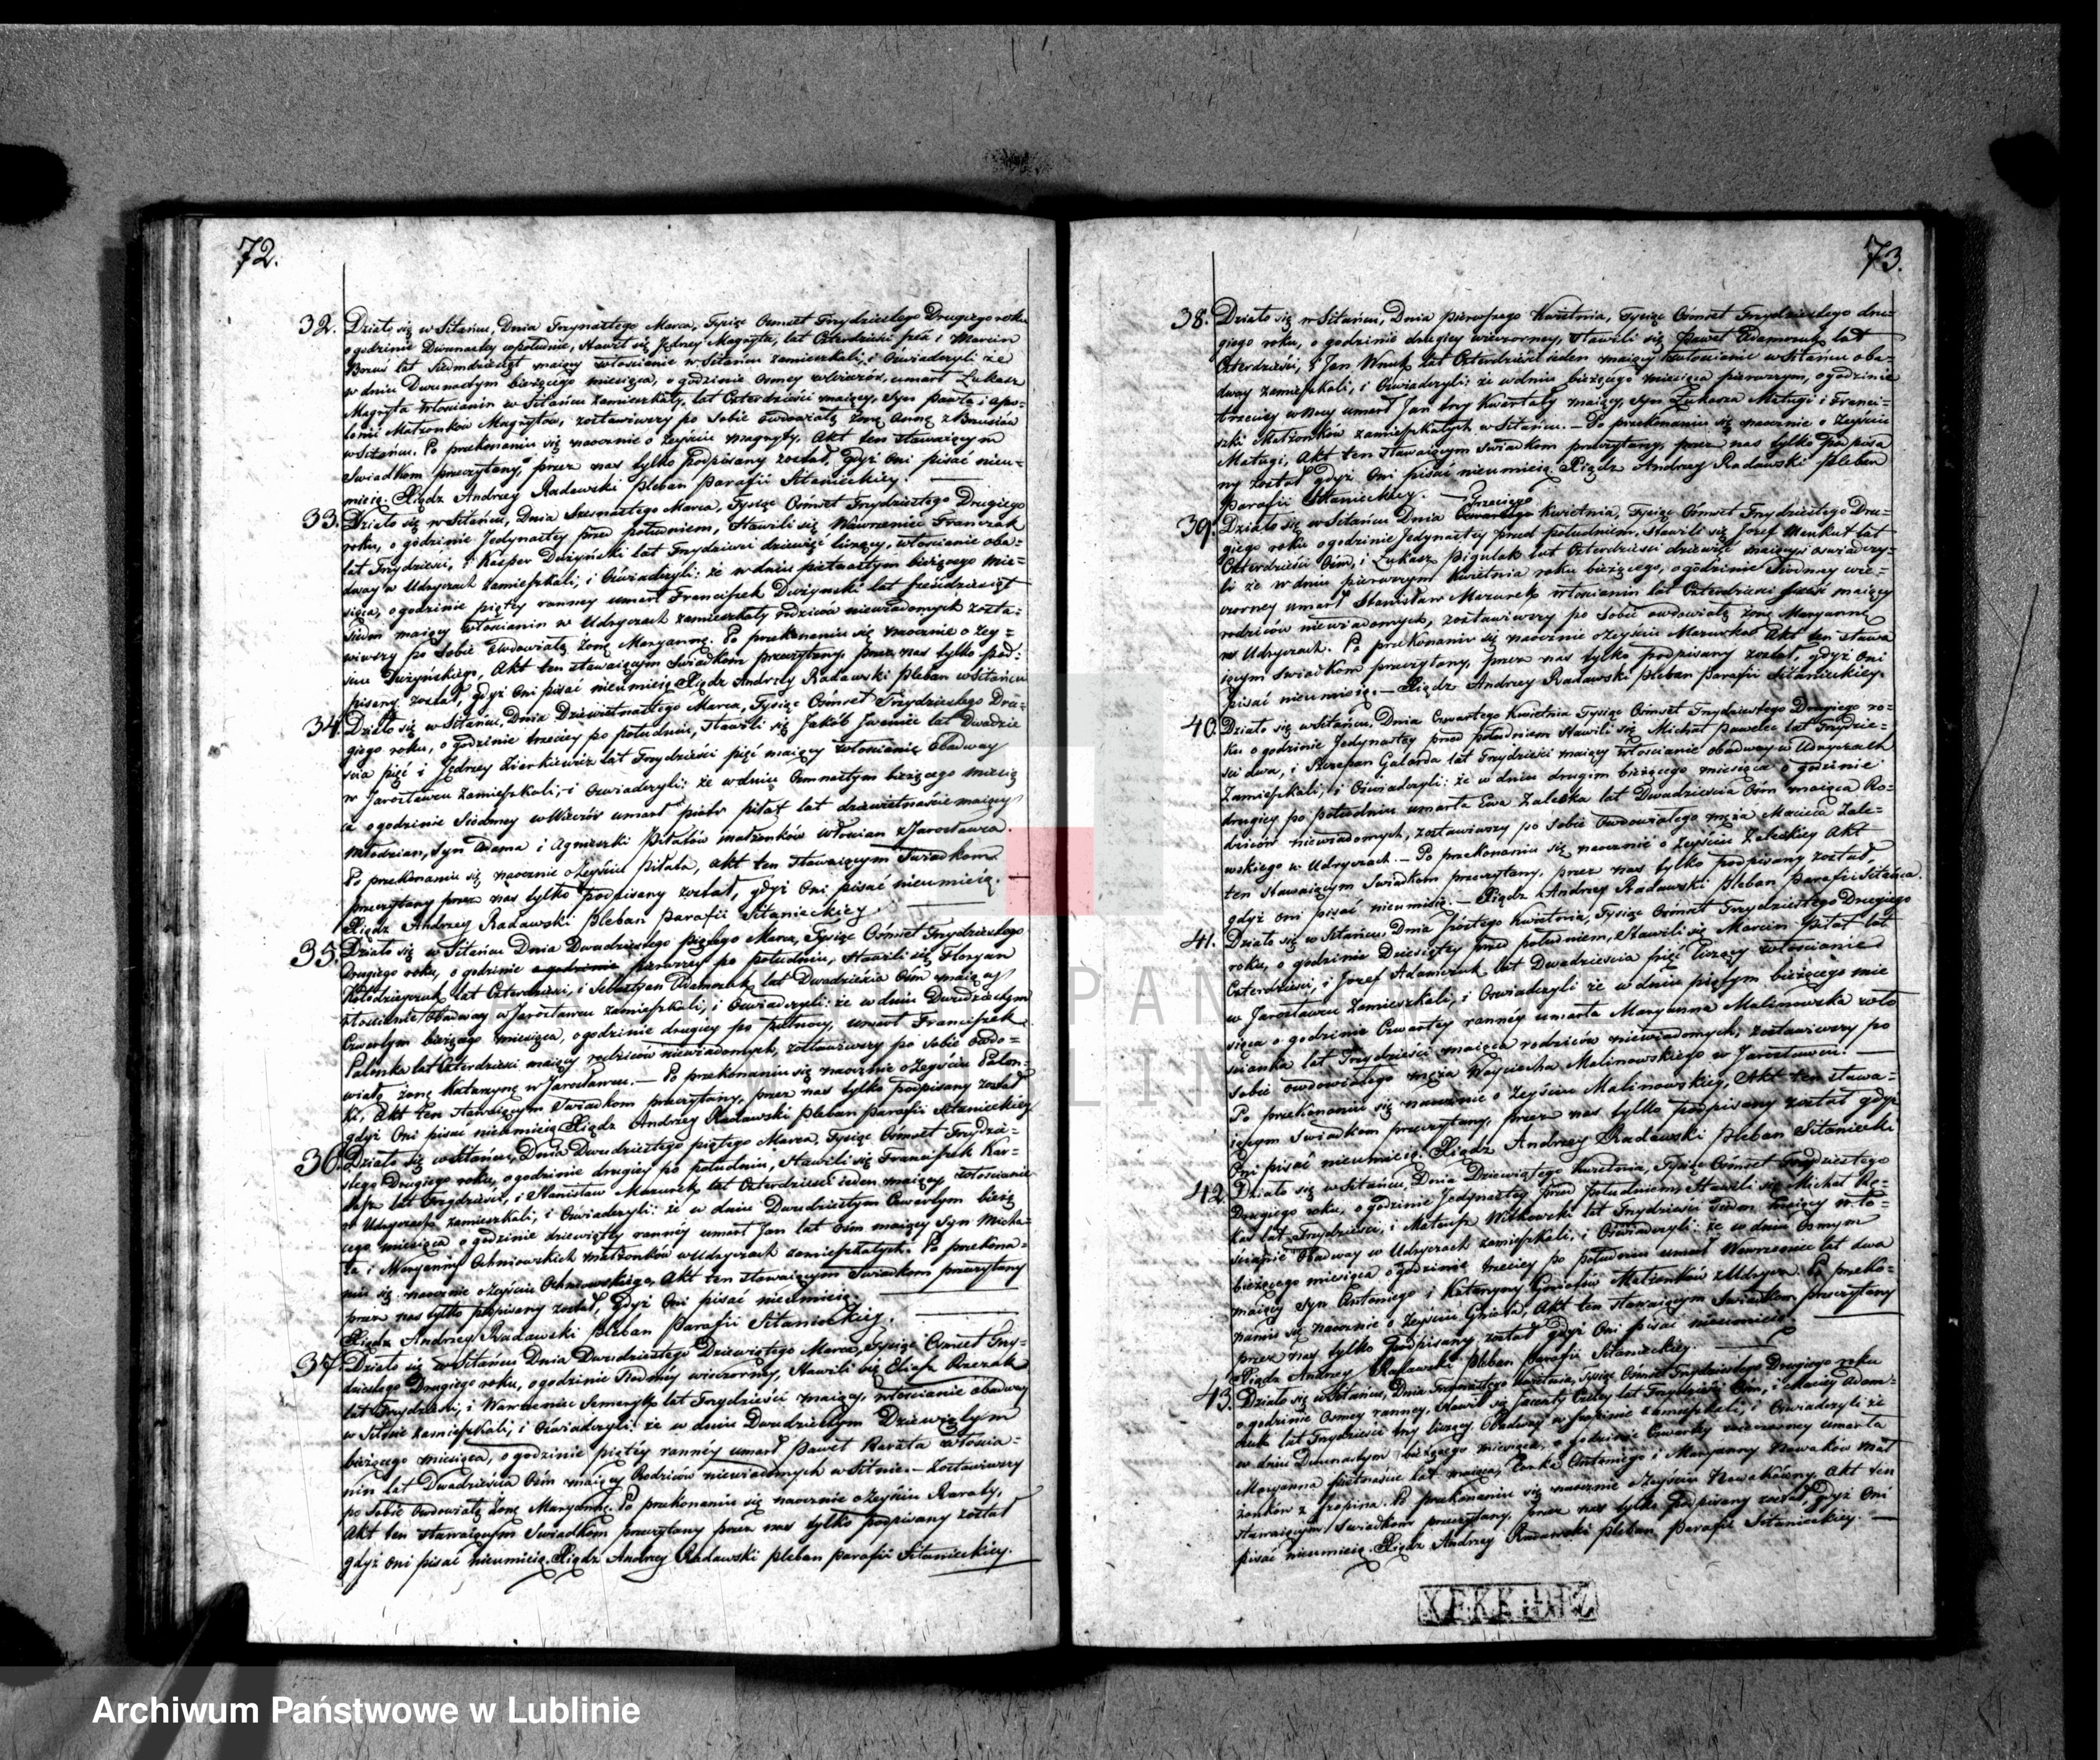 72.
32. Działo się w Sitańcu, Dnia Trzynastego Marca, Tysiąc Osmset Trzydziestego Drugiego roku
o godzinie Dwunastey w południe, Stawił się Jędrzey Magryta, lat Czterdzieści i Marcin
lat Siedmdziesiąt maiący włościanie w Sitańcu zamieszkali, i Oświadczyli że
w dniu Dwunastym bieżącego miesiąca, o godzinie Osmey w Wieczór, umarł Łukasz
Magryta Włościanin w Sitańcu zamieszkały, lat Czterdzieści maiący, Syn Pawła i Apo-
lonii Małżonków Magrytów, zostawiwszy po Sobie owdowiałą Żonę Annę z
w Sitańcu. Po przekonaniu się naocznie o Zeyściu Magryty, Akt ten stawaiącym
Swiadkom przeczytany, przez nas tylko podpisany został, gdyż Oni pisać nieu-
mieią. Xiądz Andrzey Radawski Pleban Parafii Sitanieckiey.
33. Działo się w Sitańcu, Dnia Szesnastego Marca, Tysiąc Osmset Trzydziestego Drugiego
roku, o godzinie Jedynastey przed południem, Stawili się Wawrzeniec Franczak
lat Trzydzieści, i Kasper Dużyński lat Trzydzieści dziewięć liczący, włościanie oba-
dway w Udryczach zamieszkali, i Oświadczyli: że w dniu piętnastym bieżącego mie-
siąca, o godzinie piątey ranney umarł Franciszek Dużyński lat sześćdziesiąt
Siedm maiący włościanin w Udryczach zamieszkały rodziców niewiadomych, zosta-
wiwszy po Sobie Owdowiałą Żonę Maryannę. Po przekonaniu się naocznie o Zey-
ściu Dużyńskiego, Akt ten stawaiącym Swiadkom przeczytany, przez nas tylko pod-
pisany został, gdyż Oni pisać nieumieią Xiądz Andrzey Radawski Pleban w Sitańcu
34. Działo się w Sitańcu, Dnia Dziewiętnastego Marca, Tysiąc Osmset Trzydziestego Dru-
giego roku, o godzinie trzeciey po południu, Stawili się Jakób lat Dwadzie
ścia pięć i Jędrzey Zierkiewicz lat Trzydzieści pięć maiący włościanie Obadway
w Jarosławcu zamieszkali, i Oświadczyli: że w dniu Osmnastym bieżącego miesią
ca o godzinie Siódmey w Wieczór umarł piotr piłat lat dziewiętnaście maiący
Młodzian, Syn Adama i Agnieszki Piłatów małżonków włościan z Jarosławca.
Po przekonaniu się naocznie o Zeyściu Piłata, Akt ten stawaiącym Swiadkom
przeczytany przez nas tylko podpisany został, gdyż Oni pisać nieumieią.
Xiądz Andrzey Radawski Pleban Parafii Sitanieckiey.
35. Działo się w Sitańcu Dnia Dwudziestego piątego Marca, Tysiąc Osmset Trzydziestego
Drugiego roku, o godzinie o godzinie pierwszey po południu, Stawili się Floryan
Kołodzieyczuk lat Czterdzieści, i Sebastyan Adamczuk lat Dwadzieścia Osm maiący
włościanie Obadway w Jarosławcu zamieszkali, i Oświadczyli: że w dniu Dwudziestym
Czwartym bieżącego miesiąca, o godzinie drugiey po północy, umarł Franciszek
Palonka lat Czterdzieści maiący rodziców niewiadomych, zostawiwszy po sobie Owdo-
wiałą Żonę Katarzynę w Jarosławcu. — Po przekonaniu się naocznie o Zeyściu Palon-
ki, Akt ten stawaiącym Swiadkom przeczytany, przez nas tylko podpisany został
gdyż Oni pisać nieumieią Xiądz Andrzey Radawski Pleban Parafii Sitanieckiey
36. Działo się w Sitańcu, Dnia Dwudziestego piątego Marca, Tysiąc Osmset Trzydzie-
stego Drugiego roku, o godzinie drugiey po południu, Stawili się Franciszek Kar-
lat Trzydzieści, i Stanisław Mazurek lat Czterdzieści ieden maiący włościanie
w Udryczach zamieszkali, i Oświadczyli: że w dniu Dwudziestym Czwartym bieżą
cego miesiąca o godzinie dziewiątey ranney umarł Jan lat Osm maiący Syn Micha-
ła i Maryanny Ochniowskich małżonków w Udryczach zamieszkałych. Po przekona-
niu się naocznie o Zeyściu Ochniowskiego, Akt ten stawaiącym Swiadkom przeczytany
przez nas tylko podpisany został, gdyż Oni pisać nieumieią.
Xiądz Andrzey Radawski Pleban Parafii Sitanieckiey.
37. Działo się w Sitańcu Dnia Dwudziestego Dziewiątego Marca, Tysiąc Osmset Trzy-
dziestego Drugiego roku, o godzinie Siodmey wieczorney, Stawili się Eliasz
lat Trzydzieści, i Wawrzeniec Semeryło lat Trzydzieści maiący, włościanie obadway
w Sitnie zamieszkali, i Oświadczyli: że w dniu Dwudziestym Dziewiątym
bieżącego miesiąca, o godzinie piątey ranney umarł Paweł Rarata włościa-
nin lat Dwadzieścia Osm maiący Rodziców niewiadomych w Sitnie. — Zostawiwszy
po Sobie Owdowiałą Żonę Maryannę. Po przekonaniu się naocznie o Zeyściu Raraty,
Akt ten stawaiącym Swiadkom przeczytany przez nas tylko podpisany został
gdyż Oni pisać nieumieią. Xiądz Andrzey Radawski Pleban Parafii Sitanieckiey.
73.
38. Działo się w Sitańcu, Dnia pierwszego Kwietnia, Tysiąc Osmset Trzydziestego dru-
giego roku, o godzinie drugiey wieczorney, Stawili się Paweł Adamczuk lat
Czterdzieści, i Jan Wnuk lat Czterdzieści ieden maiący włościanie w Sitańcu oba-
dway zamieszkali, i Oświadczyli: że w dniu bieżącego miesiąca pierwszym, o godzinie
trzeciey w Nocy umarł Jan trzy Kwartały maiący, Syn Łukasza Maługi i Franci-
szki Małżonków zamieszkałych w Sitańcu. — Po przekonaniu się naocznie o Zeyściu
Maługi, Akt ten stawaiącym Swiadkom przeczytany, przez nas tylko podpisa
ny został gdyż Oni pisać nieumieią. Xiądz Andrzey Radawski Pleban
Parafii Sitanieckiey.
Trzeciego
39. Działo się w Sitańcu Dnia Czwartego Kwietnia, Tysiąc Osmset Trzydziestego Dru-
giego roku o godzinie Jedynastey przed południem, Stawili się Jozef Menkut lat
Czterdzieści Osm, i Łukasz Pigulak lat Czterdzieści dziewięć maiący Oświadczy-
li że w dniu pierwszym Kwietnia roku bieżącego, o godzinie Siodmey wie-
czorney umarł Stanisław Mazurek włościanin lat Czterdzieści sześć maiący
rodziców niewiadomych, zostawiwszy po Sobie owdowiałą Żonę Maryannę
w Udryczach. Po przekonaniu się naocznie o Zeyściu Mazurka Akt ten stawa
iącym Swiadkom przeczytany, przez nas tylko podpisany został, gdyż Oni
pisać nieumieią. — Xiądz Andrzey Radawski Pleban Parafii Sitanieckiey.
40. Działo się w Sitańcu, Dnia Czwartego Kwietnia Tysiąc Osmset Trzydziestego Drugiego ro-
ku o godzinie Jedynastey przed południem Stawili się Michał Pawelec lat Trzydzie-
ści dwa, i Szczepan Galarda lat Trzydzieści maiący włościanie obadway w Udryczach
Zamieszkali, i Oświadczyli: że w dniu drugim bieżącego miesiąca o godzinie
drugiey po południu umarła Ewa Zaleska lat Dwadzieścia Osm maiąca Ro-
dziców niewiadomych, zostawiwszy po Sobie Owdowiałego męża Macieia Zale-
wskiego w Udryczach. — Po przekonaniu się naocznie o Zeyściu Zaleskiey Akt
ten stawaiącym Swiadkom przeczytany, przez nas tylko podpisany został,
gdyż Oni pisać nieumieią. — Xiądz Andrzey Radawski Pleban Parafii Sitańca.
41. Działo się w Sitańcu, Dnia Kwietnia, Tysiąc Osmset Trzydziestego Drugiego
roku, o godzinie Dziesiątey przed południem, Stawili się Marcin Piłat lat
Czterdzieści, i Jozef Adamczuk lat Dwadzieścia pięć liczący włościanie
w Jarosławcu Zamieszkali, i Oświadczyli że w dniu piątym bieżącego mie
siąca o godzinie Czwartey ranney umarła Maryanna Malinowska wło
ścianka lat Trzydzieści maiąca rodziców niewiadomych, zostawiwszy po
Sobie owdowiałego męża Woyciecha Malinowskiego w Jarosławcu. —
Po przekonaniu się naocznie o Zeyściu Malinowskiey, Akt ten stawa-
iącym Swiadkom przeczytany, przez nas tylko podpisany został gdyż
Oni pisać nieumieią. Xiądz Andrzey Radawski Pleban Sitaniecki
42. Działo się w Sitańcu, Dnia Dziewiątego Kwietnia, Tysiąc Osmset Trzydziestego
Drugiego roku, o godzinie Jedynastey przed południem, Stawili się Michał
lat Trzydzieści, i Mateusz Witkowski lat Trzydzieści Siedm maiący wło-
ścianie Obadway w Udryczach zamieszkali, i Oświadczyli: że w dniu Osmym
bieżącego miesiąca o godzinie trzeciey po południu umarł Wawrzeniec lat dwa
maiący Syn Antoniego i Katarzyny Małżonków z Udrycz. Po przeko-
naniu się naocznie o Zeyściu Akt ten stawaiącym Swiadkom przeczytany
przez nas tylko podpisany został gdyż Oni pisać nieumieią.
Xiądz Andrzey Radawski Pleban Parafii Sitanieckiey.
43. Działo się w Sitańcu, Dnia Trzynastego Kwietnia, Tysiąc Osmset Trzydziestego Drugiego roku
o godzinie Osmey ranney, Stawił się Jacenty lat Trzydzieści Osm, i Maciey Adam-
czuk lat Trzydzieści trzy liczący Obadway w zamieszkali, i Oświadczyli że
w dniu Dwunastym bieżącego miesiąca, o godzinie Czwartey wieczorney umarła
Maryanna piętnaście lat maiąca, Corka Antoniego i Maryanny Nowaków Mał
żonków z . Po przekonaniu się naocznie o Zeyściu Nowakowny Akt ten
stawaiącym Swiadkom przeczytany, przez nas tylko podpisany został, gdyż Oni
pisać nieumieią. Xiądz Andrzey Radawski Pleban Parafii Sitanieckiey.
Archiwum Państwowe w Lublinie